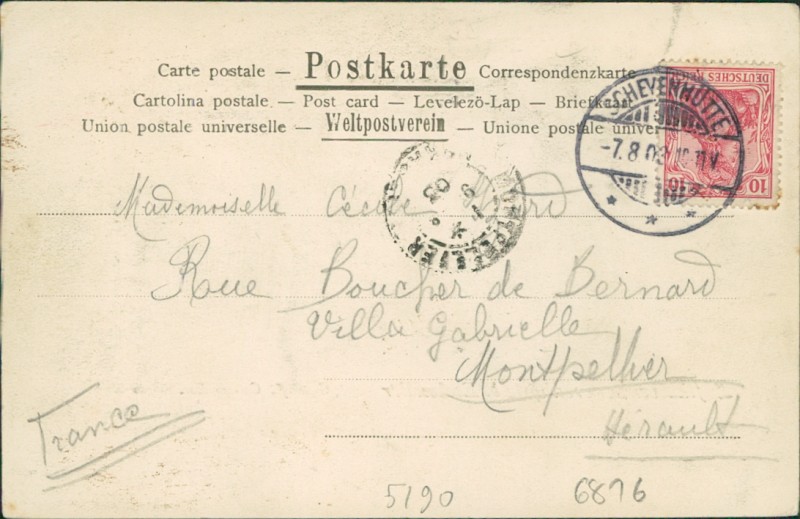 Carte postale — Postkarte Correspondenzkarte —
Cartolina postale. — Post card — Levelezö-Lap — Briefkaart
Union postale universelle — Weltpostverein — Unione postale univer
DEUTSCHES REICH
10 10
SCHEVENHÜTTE
-7.8.03 10-11V
MONTPELLIER
Mademoiselle Cécile
Rue Boucher de Bernard
Villa Gabrielle
Montpellier
Hérault
France
5190 6876